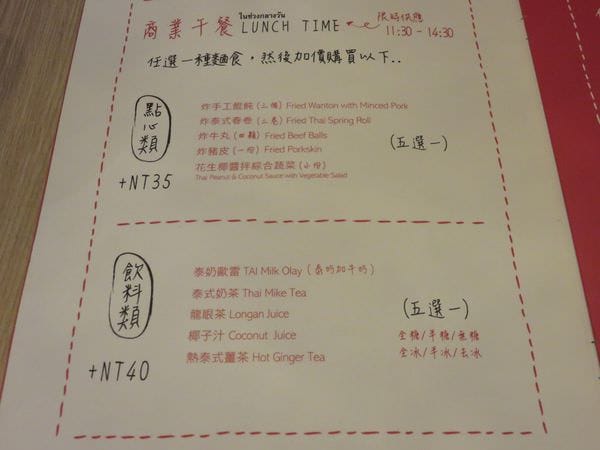 ในช่วงกลางวัน
商業午餐 LUNCH TIME 限時供應
11:30 - 14:30
任選一種麵食，然後加價購買以下..
點心類
+NT35
炸手工餛飩(三個) Fried Wanton with Minced Pork
炸泰式春卷(二卷) Fried Thai Spring Roll
炸牛丸(四顆) Fried Beef Balls
炸豬皮(一份) Fried Porkskin
花生椰醬拌綜合蔬菜(小份)
Thai Peanut & Coconut Sauce with Vegetable Salad
(五選一)
飲料類
+NT40
泰奶歐雷 TAI Milk Olay (泰奶加牛奶)
泰式奶茶 Thai Mike Tea
龍眼茶 Longan Juice
椰子汁 Coconut Juice
熱泰式薑茶 Hot Ginger Tea
(五選一)
全糖/半糖/無糖
全冰/半冰/去冰